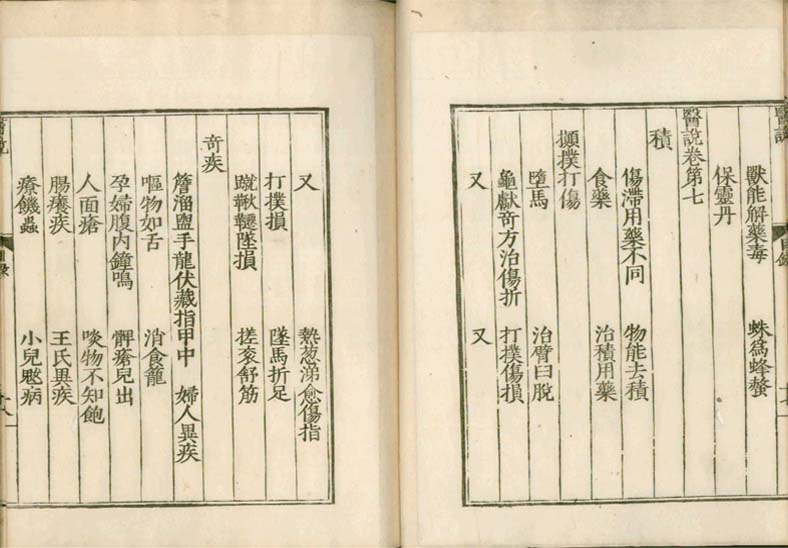 醫說
目錄
獸能解藥毒 蛛爲蜂螫
保靈丹
醫說卷第七
積
傷滯用藥不同 物能去積
食藥 治積用藥
攧撲打傷
墮馬 治臂臼脫
龜獻奇方治傷折 打撲傷損
又 又
又 熱葱涕愈傷指
打撲損 墜馬折足
蹴鞦韆墜損 搓衮舒筋
奇疾
簷溜盥手龍伏藏指甲中 婦人異疾
嘔物如舌 消食籠
孕婦腹内鐘鳴 髀瘡兒出
人面瘡 啖物不知飽
腸癢疾 王氏異疾
療饑蟲 小兒鬾病
醫說
目錄